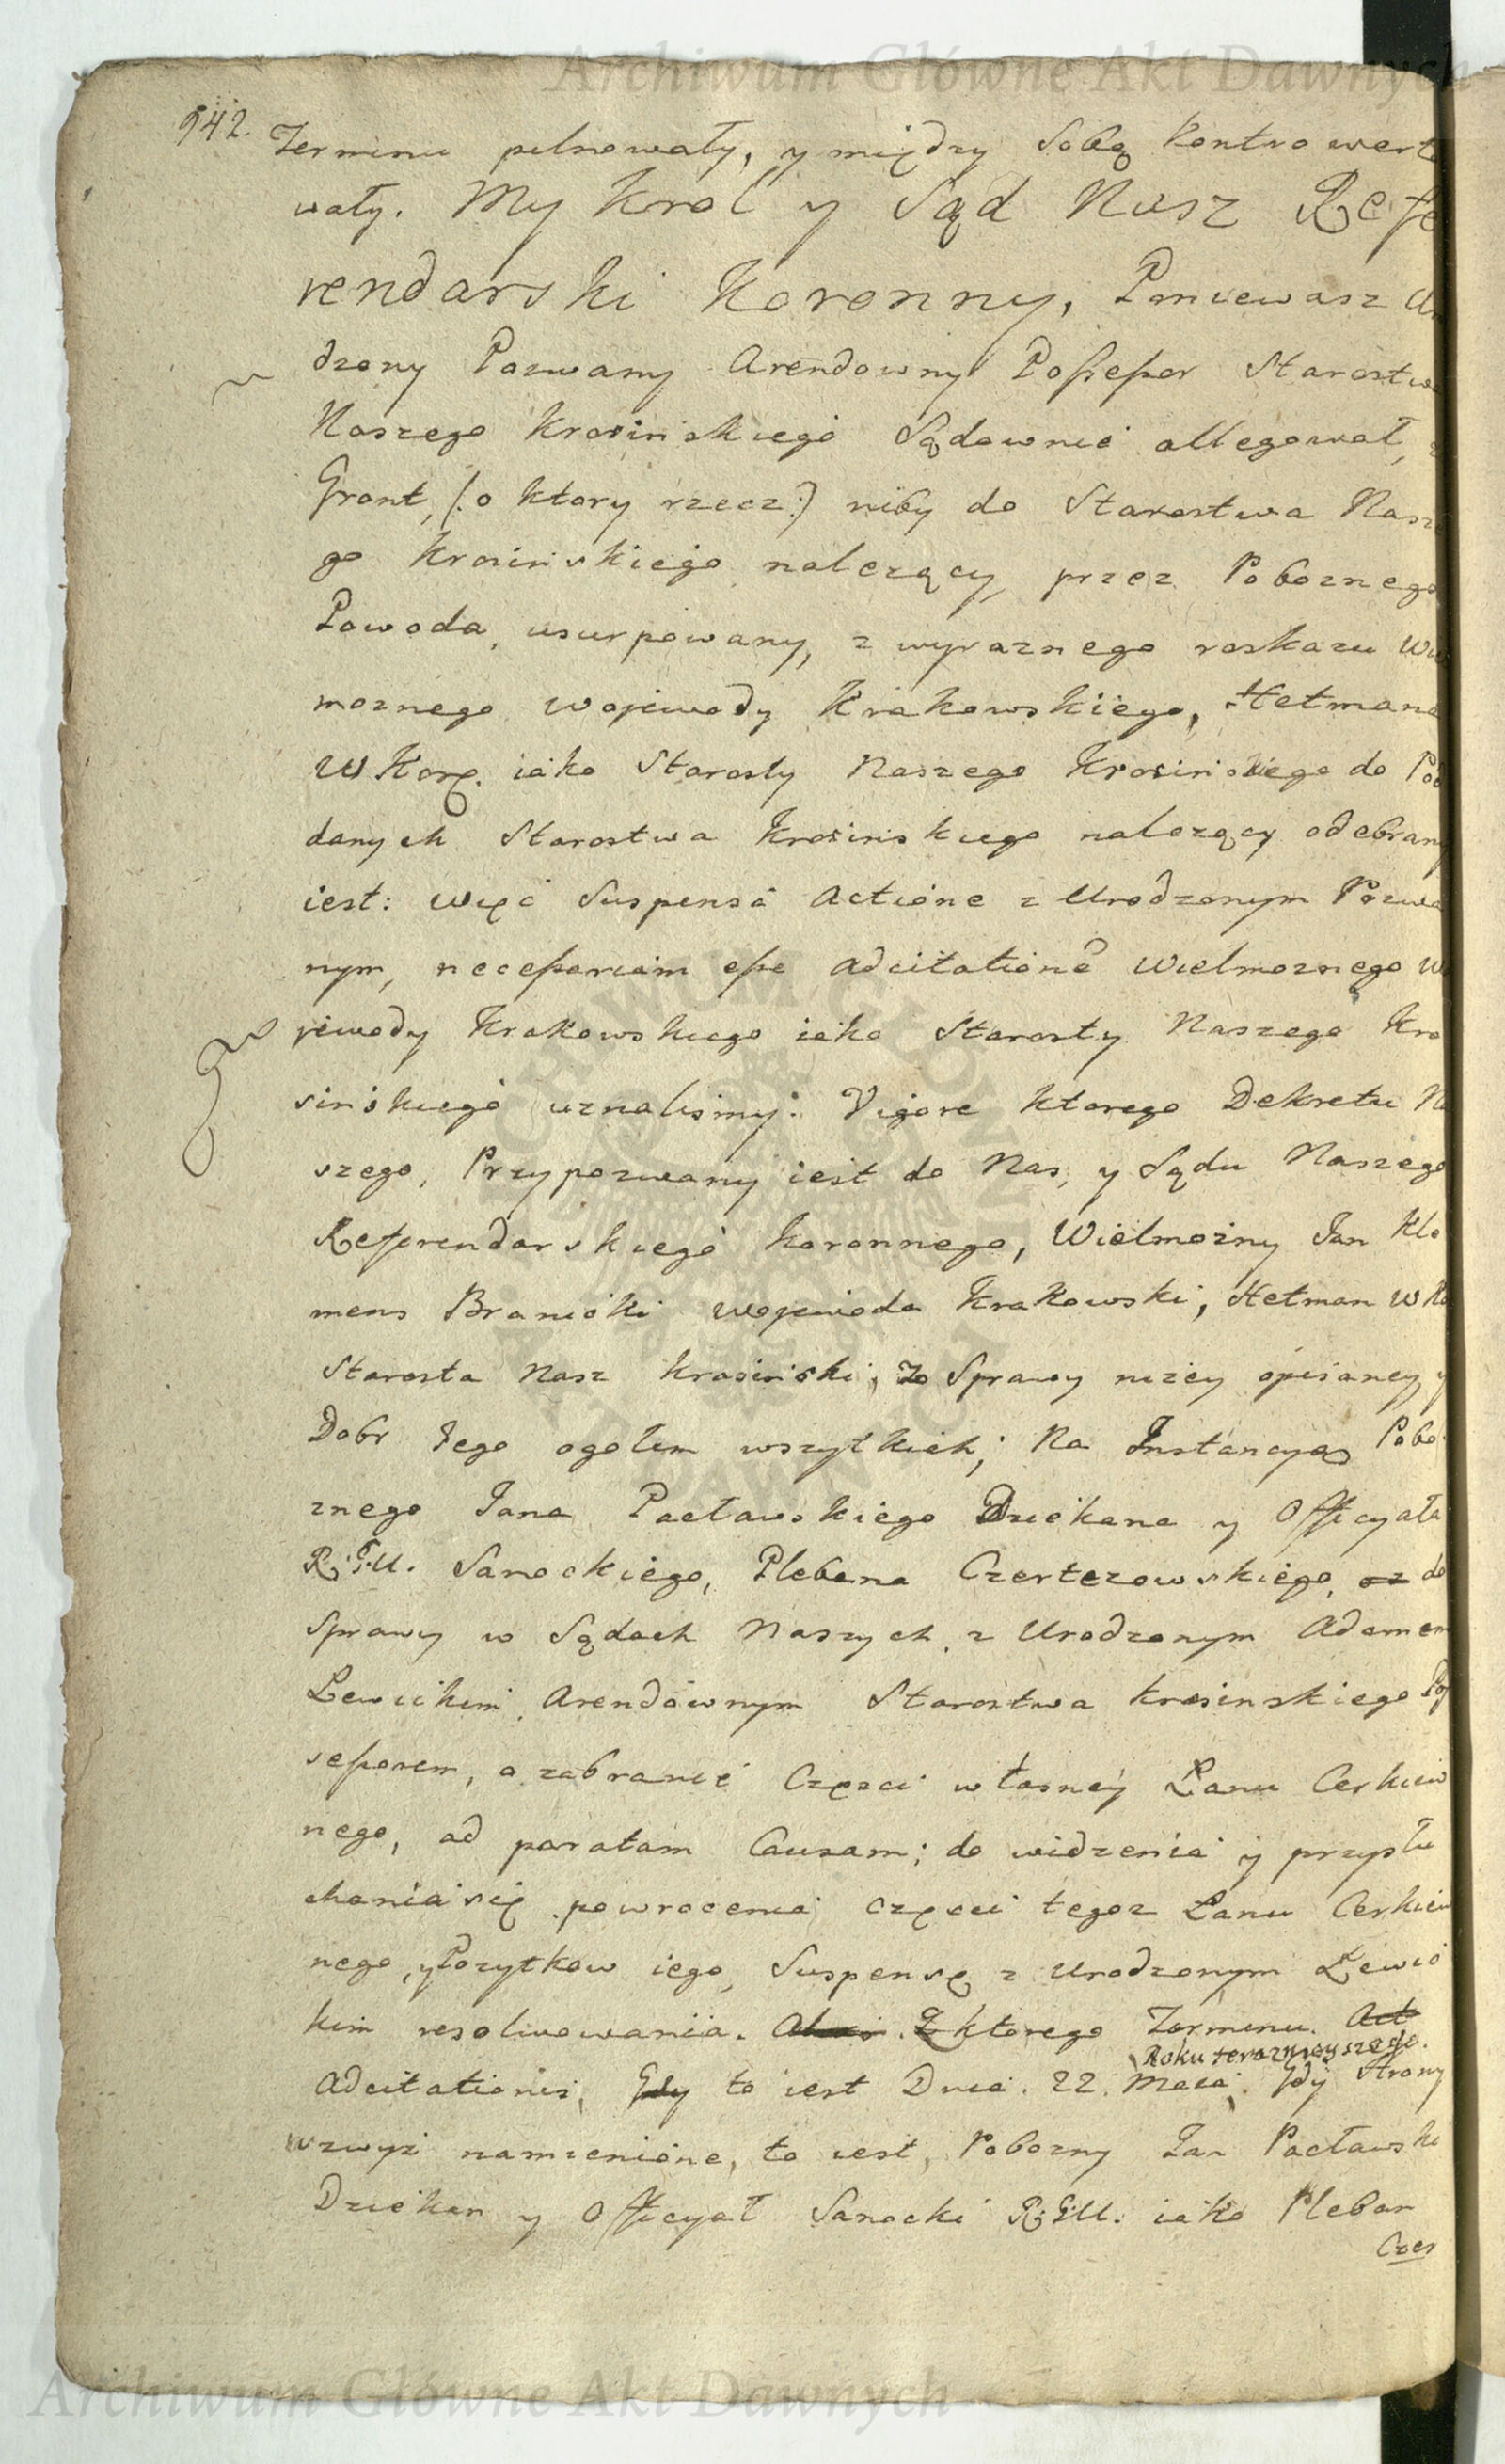 Archiwum Główne Akt Dawnych
942.
Terminu pilnowały, y między Sobą kontrowerto
wały. My Krol y Sąd Nasz Refe
rendarski Koronny, Poniewasz Uro
dzony Pozwany Arendowny Possessor Starostwa
Naszego Krosinskiego Sądownie allegował,
Gront, (: o ktory rzecz :) niby do Starostwa Nasze
go Krosinskiego należący, przez Poboznego
Powoda, usurpowany, z wyraznego roskazu Wiel
moznego Wojewody Krakowskiego, Hetmana
W Korę. iako Starosty Naszego Krosinskiego do Pod
danych Starostwa Krosinskiego nalezący odebrany
iest: więc Suspensâ Actione z Urodzonym Pozwa
nym, necessariam esse Adcitatione Wielmoznego Wo
jewody Krakowskiego iako Starosty Naszego Kro
sinskiego uznalismy: Vigore ktorego Dekretu Na
szego, Przypozwany iest do Nas, y Sądu Naszego
Referendarskiego Koronnego, Wielmożny Jan Kle
mens Branicki Wojewoda Krakowski, Hetman W Ko
Starosta Nasz Krosinski, Zo Sprawy niżey opisaney y
Dobr Jego ogołem wszytkich; Na Instancyą Pobo
znego Jana Pacławskiego Dziekana y Officyała
R: G:U. Sanockiego, Plebana Czertezowskiego, oz do
Sprawy w Sądach Naszych z Urodzonym Adamem
Lewickim Arendownym Starostwa Krosinskiego Pos
sessorem, o zabranie Częsci własney Łanu Cerkiew
nego, ad paratam Causam; do widzenia y przysłu
chania się powrocenia częsci tegoz Łanu Cerkiew
nego, y Pozytkow iego, Suspensę z Urodzonym Lewic
kim resolwowania. Z ktorego Terminu. Act
Roku teraznieyszego.
Adcitationis, Gdy to iest Dnia. 22. Maia, Gdy Strony
wzwyż namienione, to iest, Pobozny Jan Pacławski
Dziekan y Officyał Sanocki R: G:U. iako Pleban
Czer
Archiwum Główne Akt Dawnych